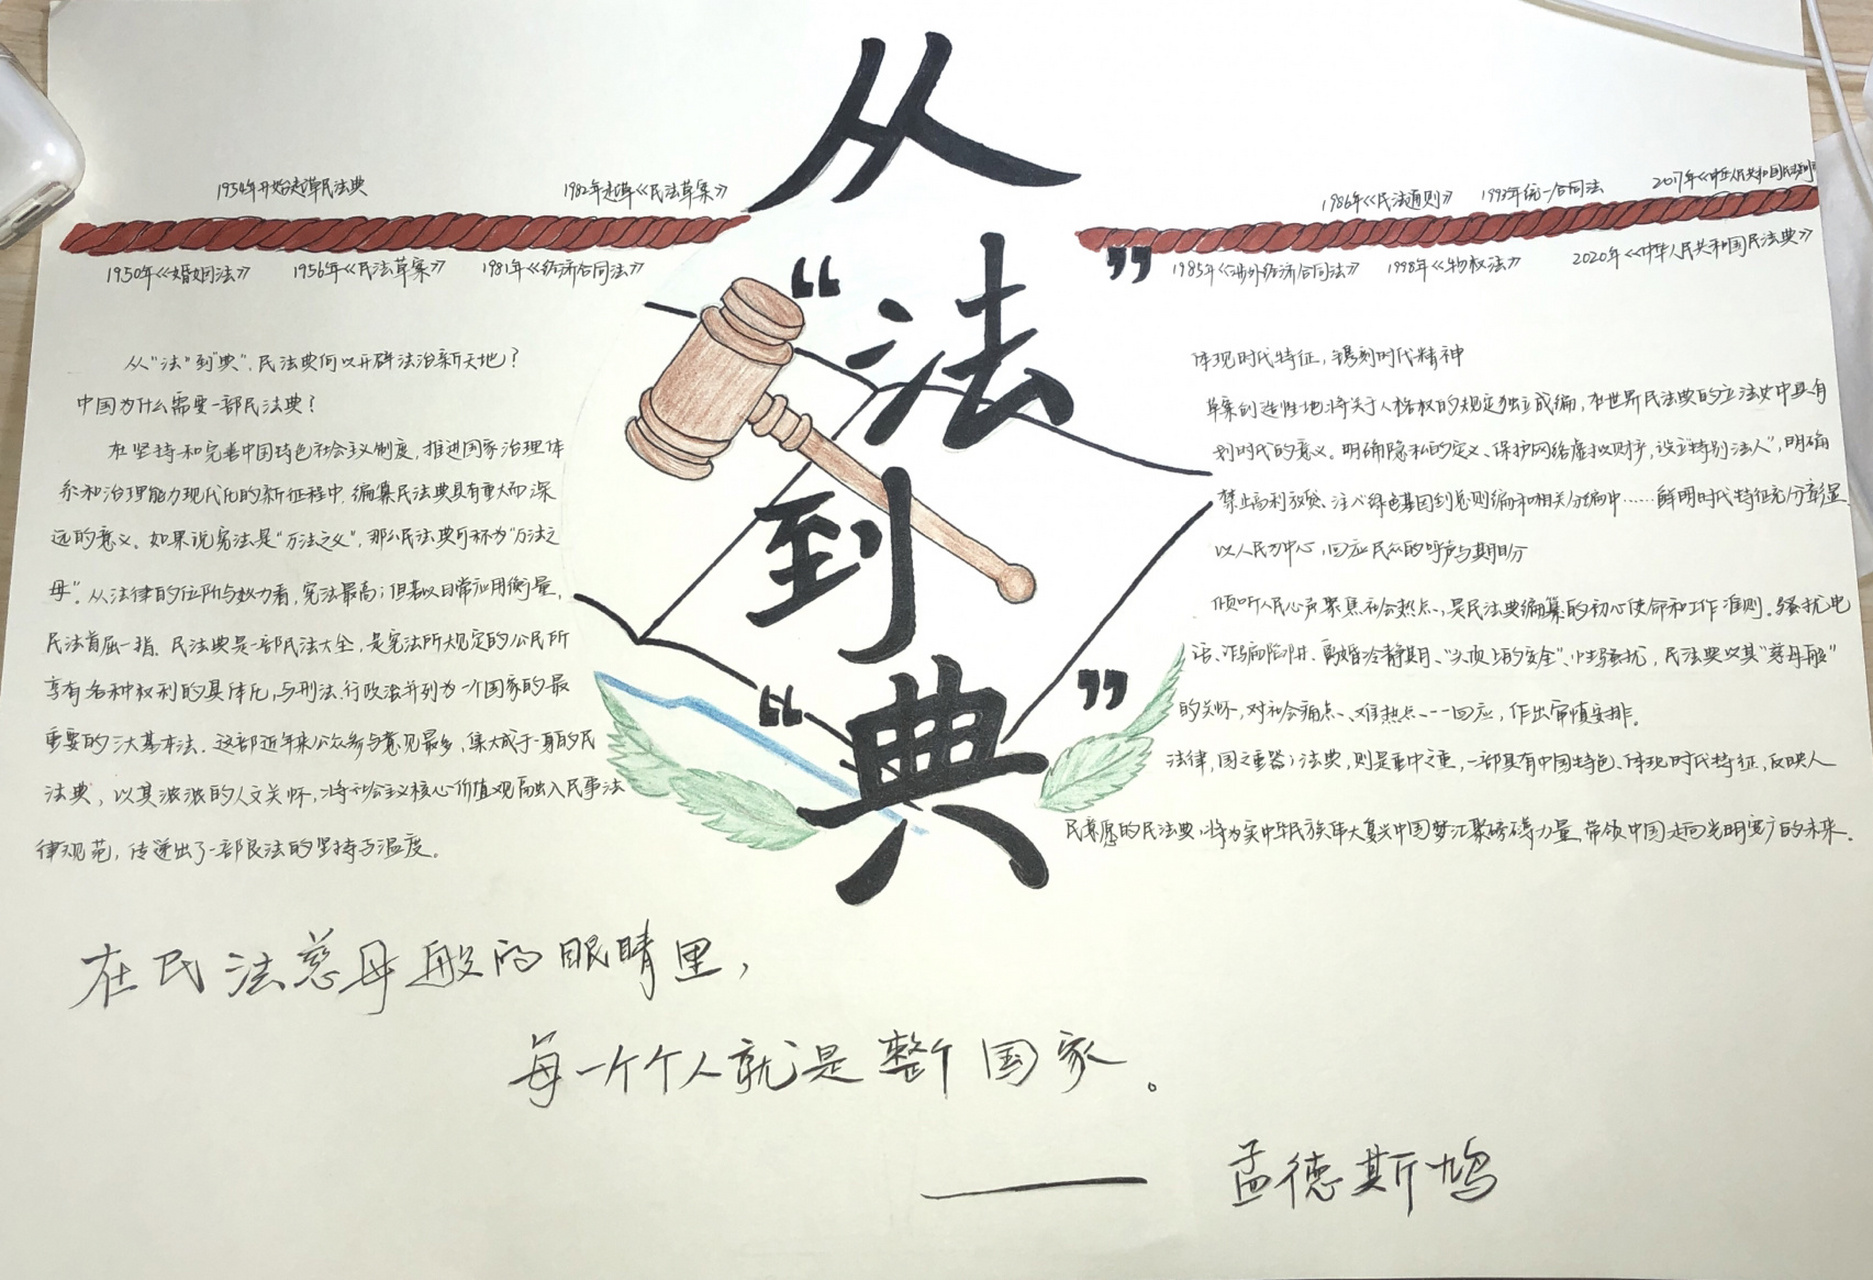 从
“法”
到
“典”
1954年开始起草民法典
1982年起草《民法草案》
1986年《民法通则》
1993年统一合同法
2017年《中华人民共和国民法总则
1950年《婚姻法》
1956年《民法草案》
1981年《经济合同法》
1985年《涉外经济合同法》
1998年《物权法》
2020年《中华人民共和国民法典》
从“法”到“典”，民法典何以开辟法治新天地？
中国为什么需要一部民法典？
在坚持和完善中国特色社会主义制度，推进国家治理体
系和治理能力现代化的新征程中，编纂民法典具有重大而深
远的意义。如果说宪法是“万法之父”，那么民法典可称为“万法之
母”。从法律的位阶与效力看，宪法最高；但若以日常应用衡量，
民法首屈一指。民法典是一部民法大全，是宪法所规定的公民所
享有各种权利的具体化，与刑法、行政法并列为一个国家的最
重要的三大基本法。这部近年来公众参与意见最多、集大成于一身的民
法典，以其浓浓的人文关怀，将社会主义核心价值观融入民事法
律规范，传递出了一部良法的坚持与温度。
体现时代特征，镌刻时代精神
草案创造性地将关于人格权的规定独立成编，在世界民法典的立法史中具有
划时代的意义。明确隐私的定义、保护网络虚拟财产，设立“特别法人”，明确
禁止高利放贷、注入绿色基因到总则编和相关分编中……鲜明时代特征充分彰显
以人民为中心，回应民众的呼声与期盼
倾听人民心声、聚焦社会热点、是民法典编纂的初心使命和工作准则。骚扰电
话、诈骗陷阱、离婚冷静期、“头顶上的安全”、性骚扰，民法典以其“慈母般”
的关怀，对社会痛点、难热点一一回应，作出审慎安排。
法律，国之重器；法典，则是重中之重，一部具有中国特色、体现时代特征，反映人
民意愿的民法典，将为实中华民族伟大复兴中国梦汇聚磅礴力量，带领中国走向光明宽广的未来。
在民法慈母般的眼睛里，
每一个个人就是整个国家。
—— 孟德斯鸠